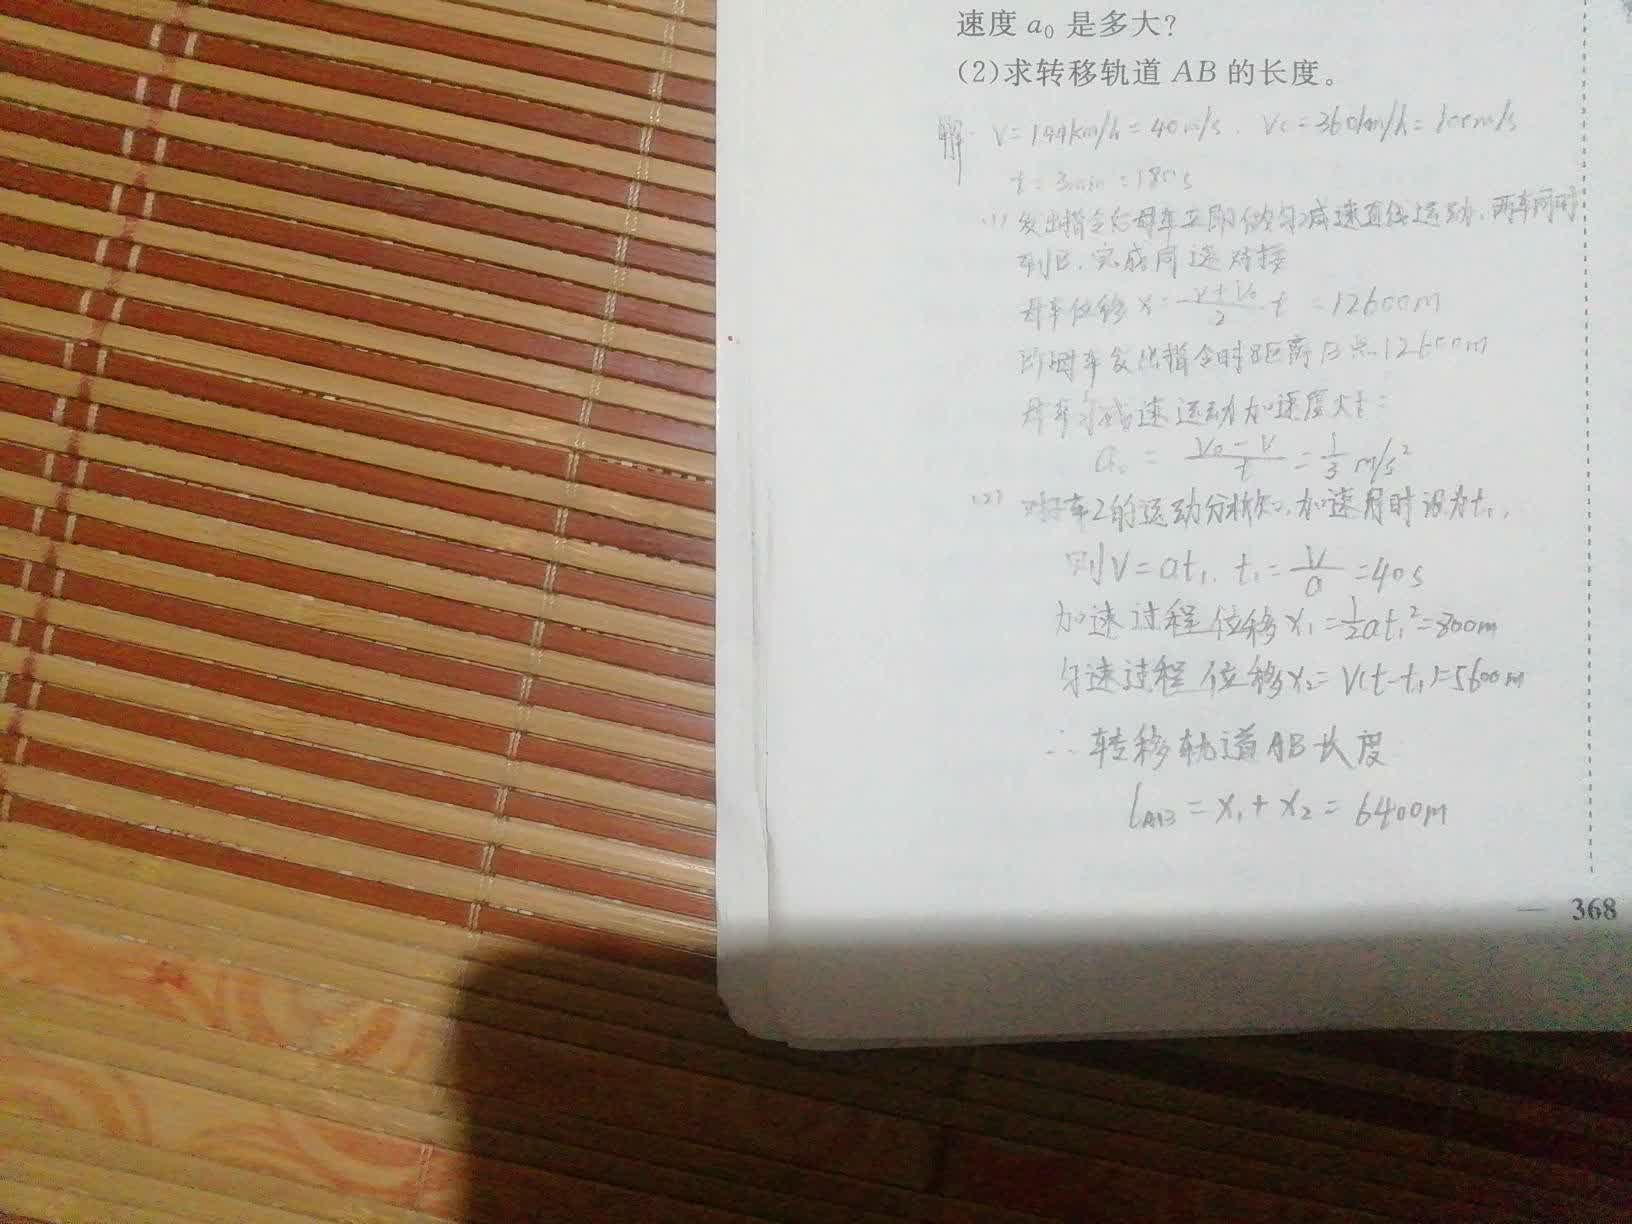 速度 a₀ 是多大?
(2)求转移轨道 AB 的长度。
解: V=144km/h=40m/s. V₀=360km/h=100m/s
t=3min=180s
(1) 发出指令后母车立即做匀减速直线运动,两车同时
到B,完成同速对接
母车位移 x=\frac{V+V₀}{2}t =12600m
即母车发出指令时距离B点12600m
母车匀减速运动加速度大小:
a₀ = \frac{V₀-V}{t} = \frac{1}{3} m/s²
(2) 对子车2的运动分析知,加速用时设为t₁,
则V=at₁. t₁=\frac{V}{a}=40s
加速过程位移x₁=\frac{1}{2}at₁²=800m
匀速过程位移x₂=V(t-t₁)=5600m
∴ 转移轨道AB长度
l_{AB} = x₁ + x₂ = 6400m
— 368